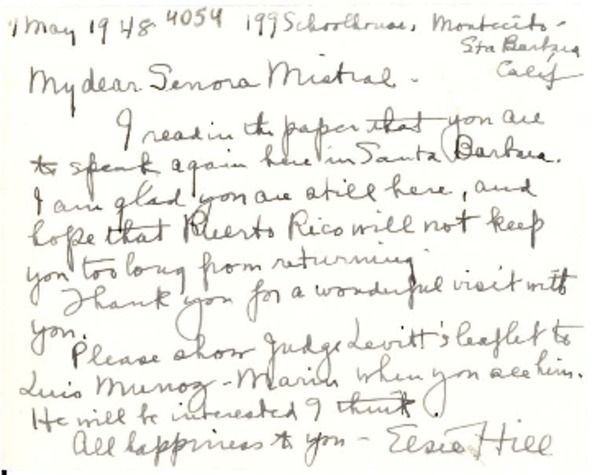 1 May 1948 4054 199 Schoolhouse, Montecito -
Sta Barbara
Calif
My dear Senora Mistral -
I read in the paper that you are
to speak again here in Santa Barbara.
I am glad you are still here, and
hope that Puerto Rico will not keep
you too long from returning.
Thank you for a wonderful visit with
you.
Please show Judge Levitt's leaflet to
Luis Munoz-Marin when you see him.
He will be interested I think.
All happiness to you - Elsie Hill